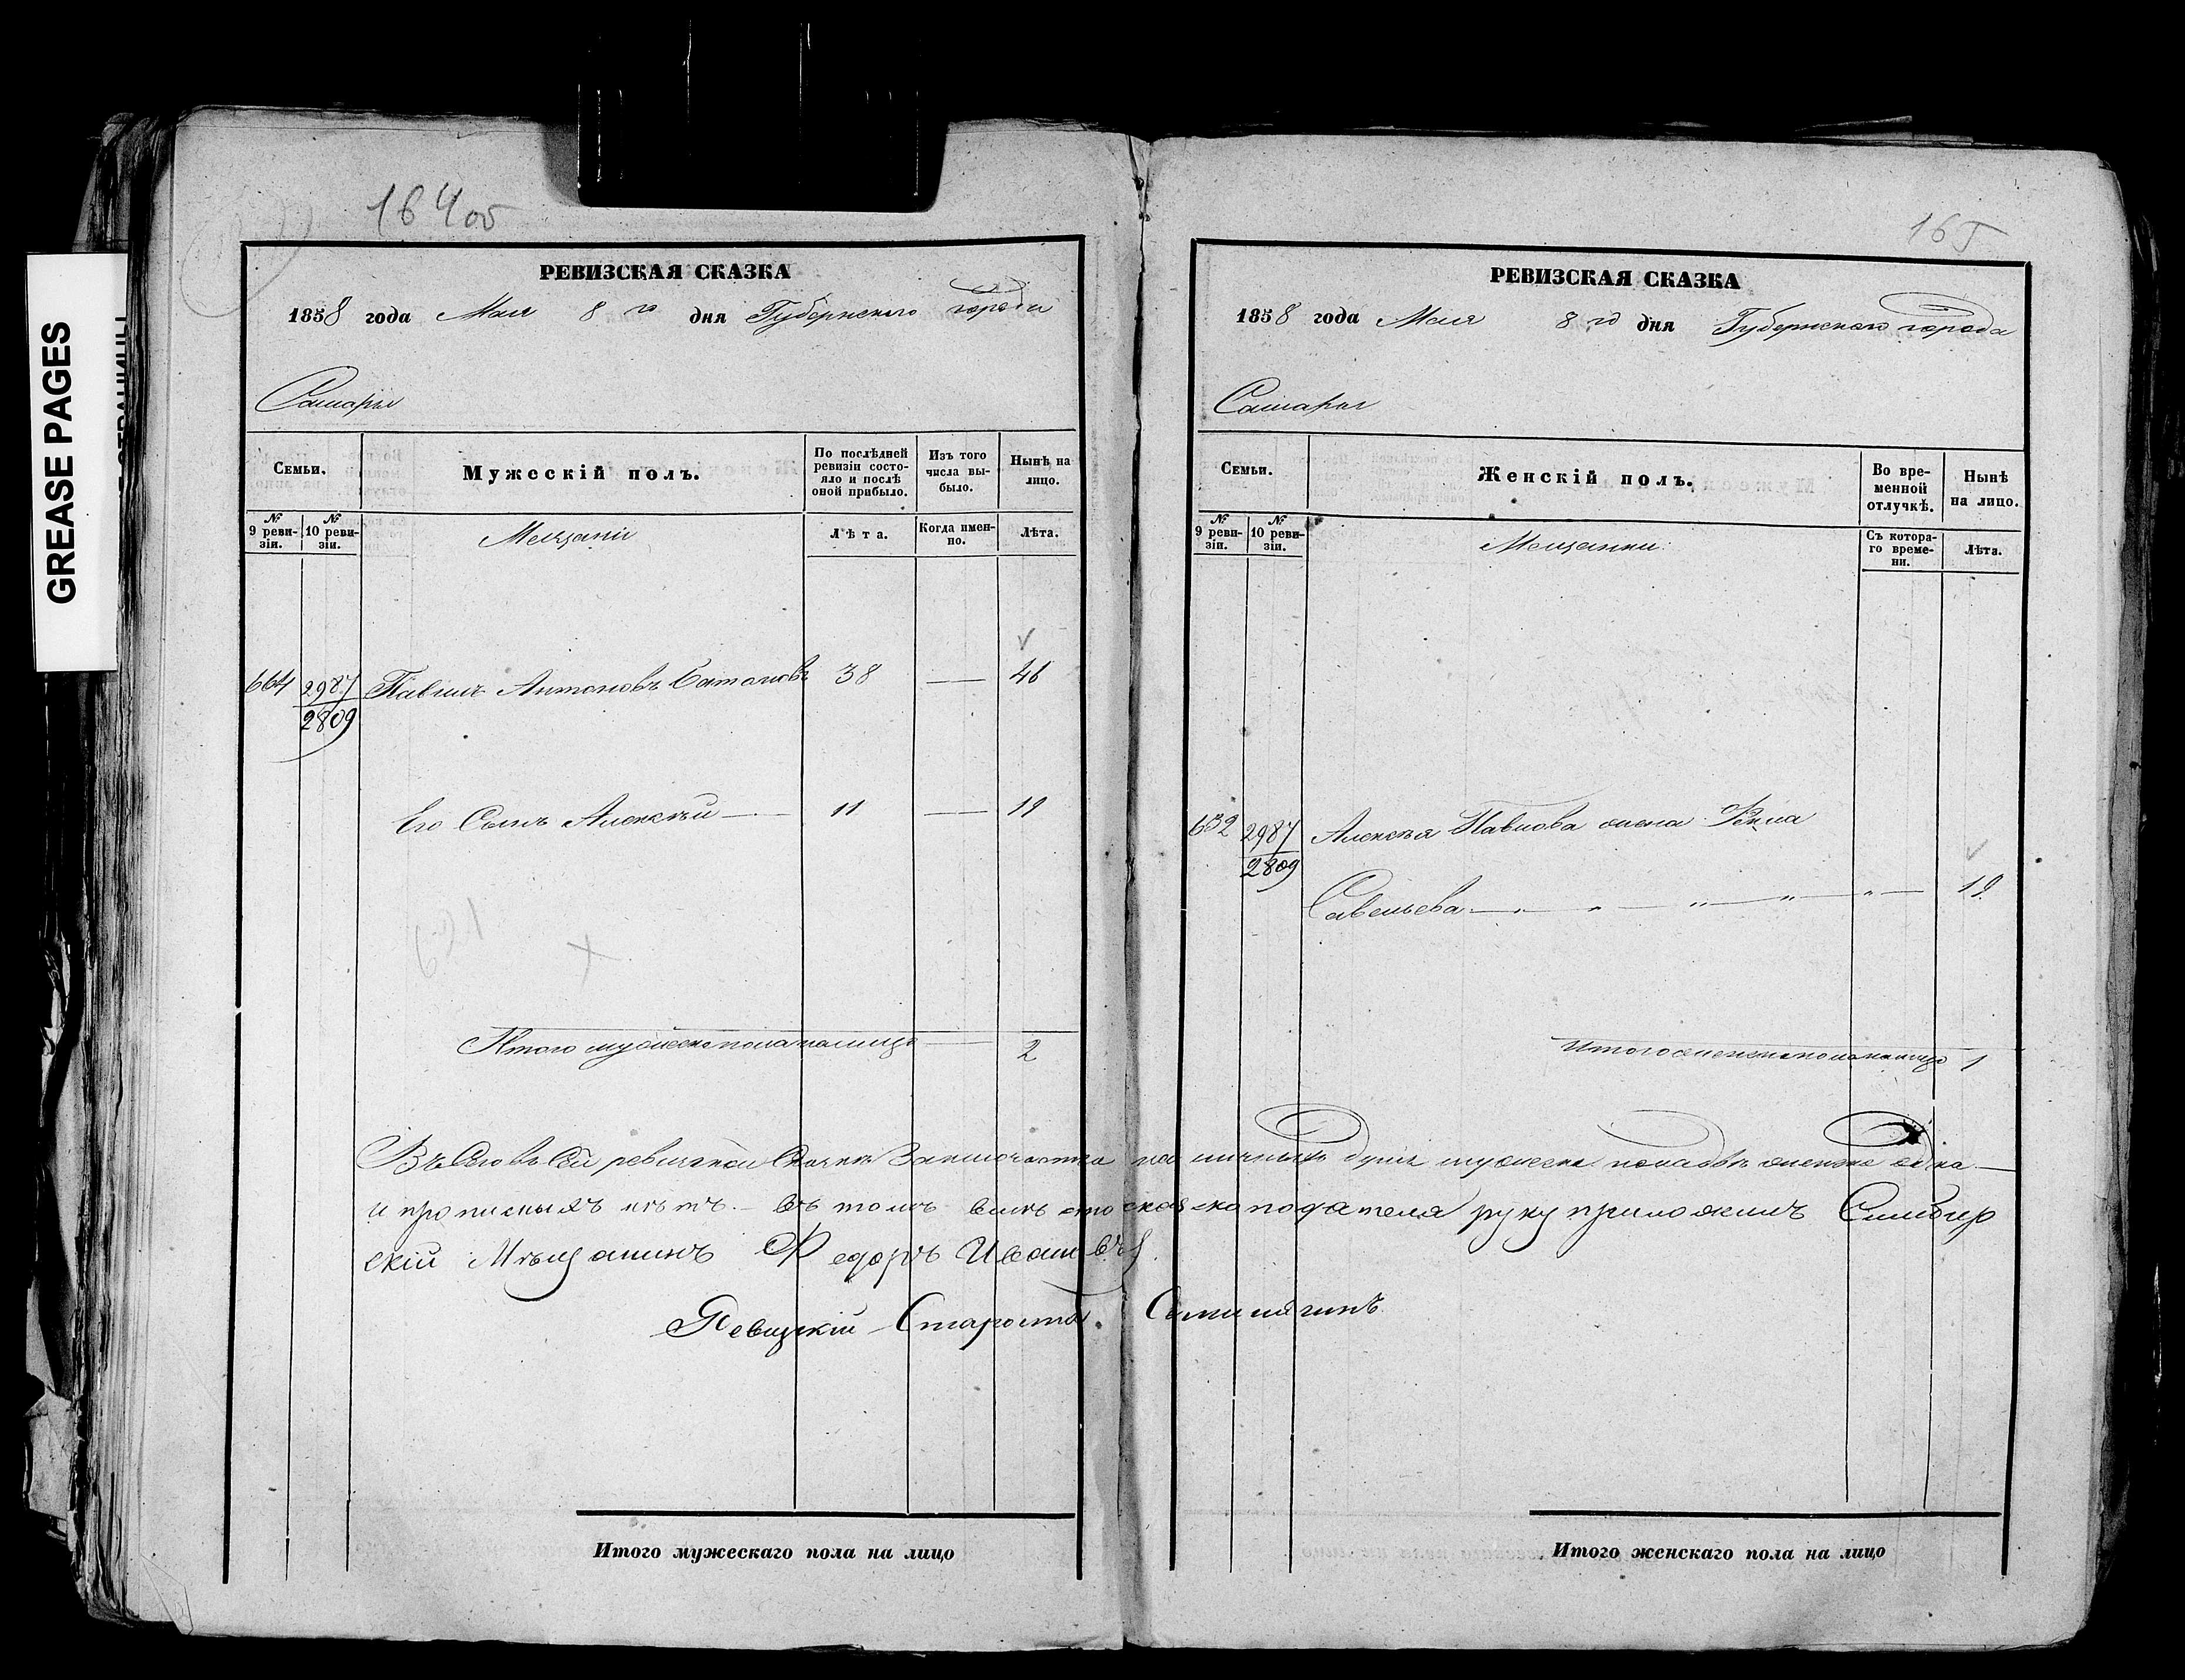 GREASE PAGES
164об
РЕВИЗСКАЯ СКАЗКА
1858 года Мая 8 го дня Губернского города
Самары
Семьи.
Мужескій полъ.
По послѣдней ревизіи состо-
яло и послѣ оной прибыло.
Изъ того числа вы-
было.
Нынѣ на лицо.
№ 9 реви-
зіи.
№ 10 реви-
зіи.
Мещани
Лѣта.
Когда имен-
но.
Лѣта.
664 2987 Павелъ Антоновъ 38 — 46
2809
Его Сынъ Алексѣй — 11 — 19
Итого мужеска пола на лицо — 2
165
РЕВИЗСКАЯ СКАЗКА
1858 года Мая 8 го дня Губернскаго города
Самары
Семьи.
Женскій полъ.
Во вре-
менной отлучкѣ.
Нынѣ на лицо.
№ 9 реви-
зіи.
№ 10 реви-
зіи.
Мещанки
Съ котора-
го време-
ни.
Лѣта.
632 2987 Алексѣя Павлова жена
2809
Савельева — 19
Итого женска пола на лицо 1
Въ сей ревизкой Сказке наличныхъ душъ мужеска пола двѣ женска одна
и прописныхъ нѣтъ. въ томъ руку приложилъ Симбир
скій Мѣщанинъ Федоръ Ивановъ
Ревизкій Староста
Итого мужескаго пола на лицо
Итого женскаго пола на лицо